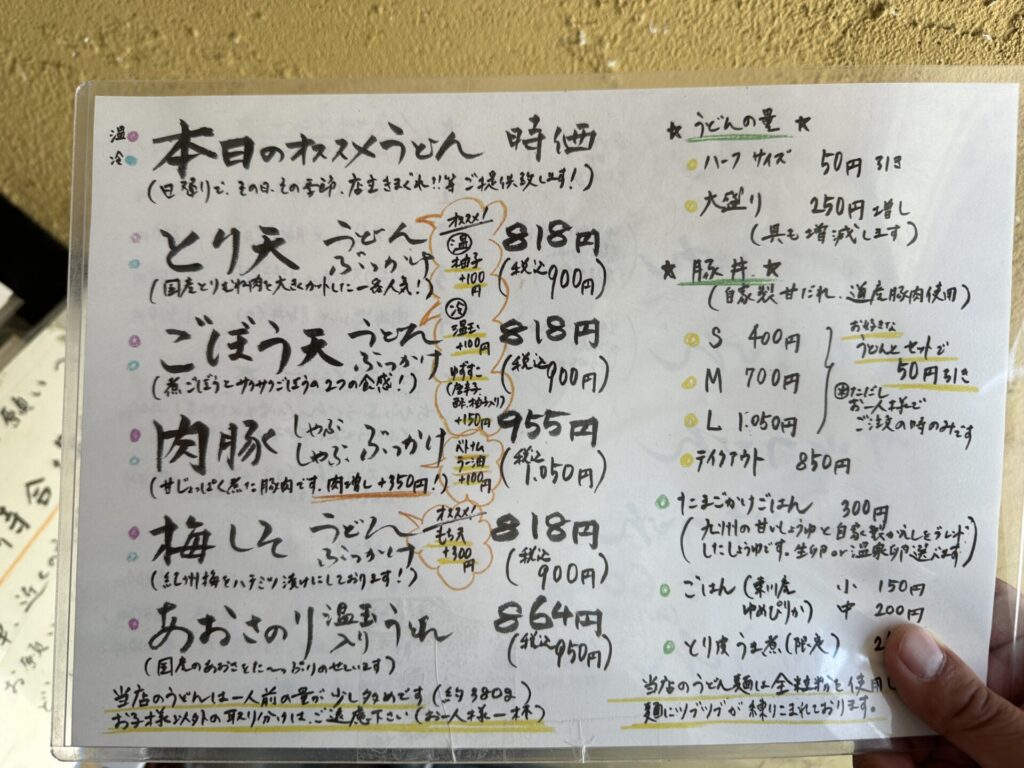 温
冷
本日のオススメうどん 時価
(日替りで、その日、その季節、店主きまぐれ!!等ご提供致します!)
とり天 うどん ぶっかけ 818円
(税込900円)
(国産とりむね肉を大きくカットした一番人気!)
ごぼう天 うどん ぶっかけ 818円
(税込900円)
(煮ごぼうとサクサクごぼうの2つの食感!)
肉豚 しゃぶしゃぶ ぶっかけ 955円
(税込1,050円)
(甘じょっぱく煮た豚肉です。肉増し+350円!)
梅しそ うどん ぶっかけ 818円
(税込900円)
(紀州梅をハチミツ漬けにしております!)
あおさのり 温玉入り うどん 864円
(税込950円)
(国産のあおさをた〜っぷりのせています)
オススメ!
温
柚子
+100円
冷
温玉
+100円
ゆずすこ
(唐辛子
酢、柚子入り)
+150円
ベトナム
ラー油
+100円
オススメ!
もちス
+300円
当店のうどんは一人前の量が少し多めです(約380g)
お子様以外の取り分けは、ご遠慮下さい(お一人様一杯)
★ うどんの量 ★
ハーフサイズ 50円引き
大盛り 250円増し
(具も増減します)
★ 豚丼 ★
(自家製甘だれ、道産豚肉使用)
S 400円
M 700円
L 1,050円
お好きな
うどんとセットで
50円引き
ただし
お一人様で
ご注文の時のみです
テイクアウト 850円
たまごかけごはん 300円
(九州の甘いしょうゆと自家製かえしをブレンド
したしょうゆです。生卵or温泉卵選べます)
ごはん(東川産 ゆめぴりか) 小 150円
中 200円
とり皮うま煮(限定)
当店のうどん麺は全粒粉を使用し
麺にツブツブが練りこまれております。